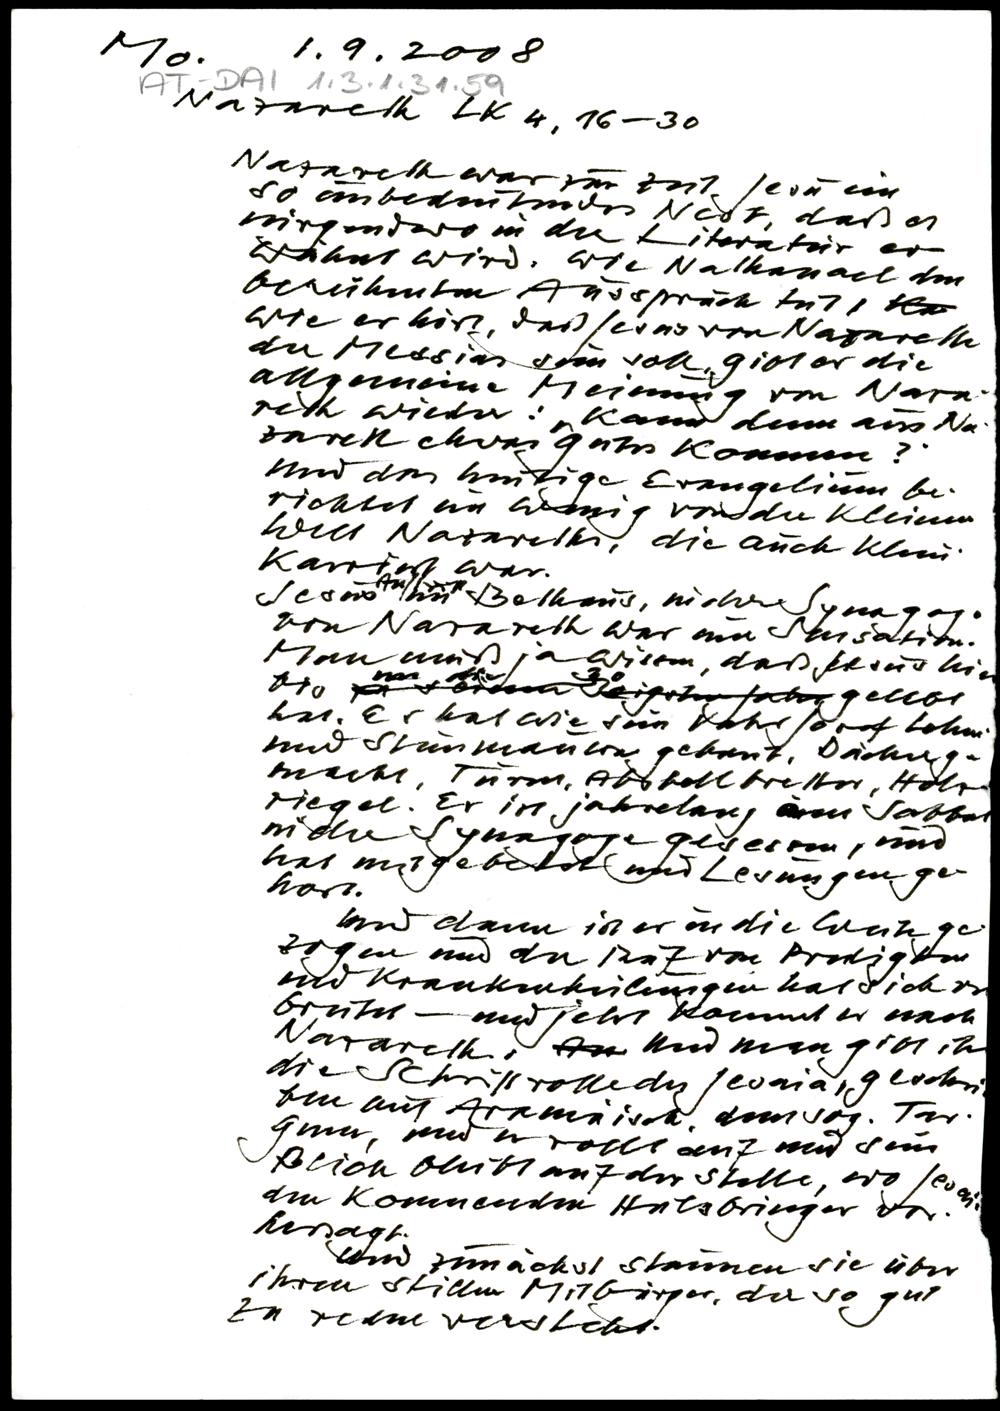 Mo. 1.9.2008
AT-DAI 1.3.1.31.59
Nazareth LK 4, 16-30
Nazareth war zur Zeit Jesu ein
so unbedeutendes Nest, daß es
nirgendwo in der Literatur er-
wähnt wird. Wie Nathanael den
berühmten Ausspruch tut,
wie er hört, daß Jesus von Nazareth
der Messias sein soll, gibt er die
allgemeine Meinung von Naza-
reth wieder: „Kann denn aus Na-
zareth etwas Gutes kommen?
Und das heutige Evangelium be-
richtet ein wenig von der kleinen
Welt Nazareths, die auch klein
Kariert war.
Jesus Auftritt im Bethaus, in der Synagoge
von Nazareth war eine Sensation.
Man muß ja wissen, daß Jesus hier
bis um die 30 gelebt
hat. Er hat wie sein Vater Josef Lehm
und Steinmauern gebaut, Dächer ge-
macht, Türen, Abstellbretter, Holz-
riegel. Er ist jahrelang am Sabbat
in der Synagoge gesessen, und
hat mitgebetet und Lesungen ge-
hört.
Und dann ist er in die Weite ge-
zogen und der Ruf von Predigten
und Krankenheilungen hat sich ver-
breitet — und jetzt kommt er nach
Nazareth. Und man gibt ihm
die Schriftrolle des Jesaia, geschrie-
ben auf Aramäisch, dem sog. Tar-
gum, und er rollt auf und sein
Blick bleibt auf der Stelle, wo Jesaia
den kommenden Heilsbringer vor-
hersagt.
Und zunächst staunen sie über
ihren stillen Mitbürger, der so gut
zu reden versteht.